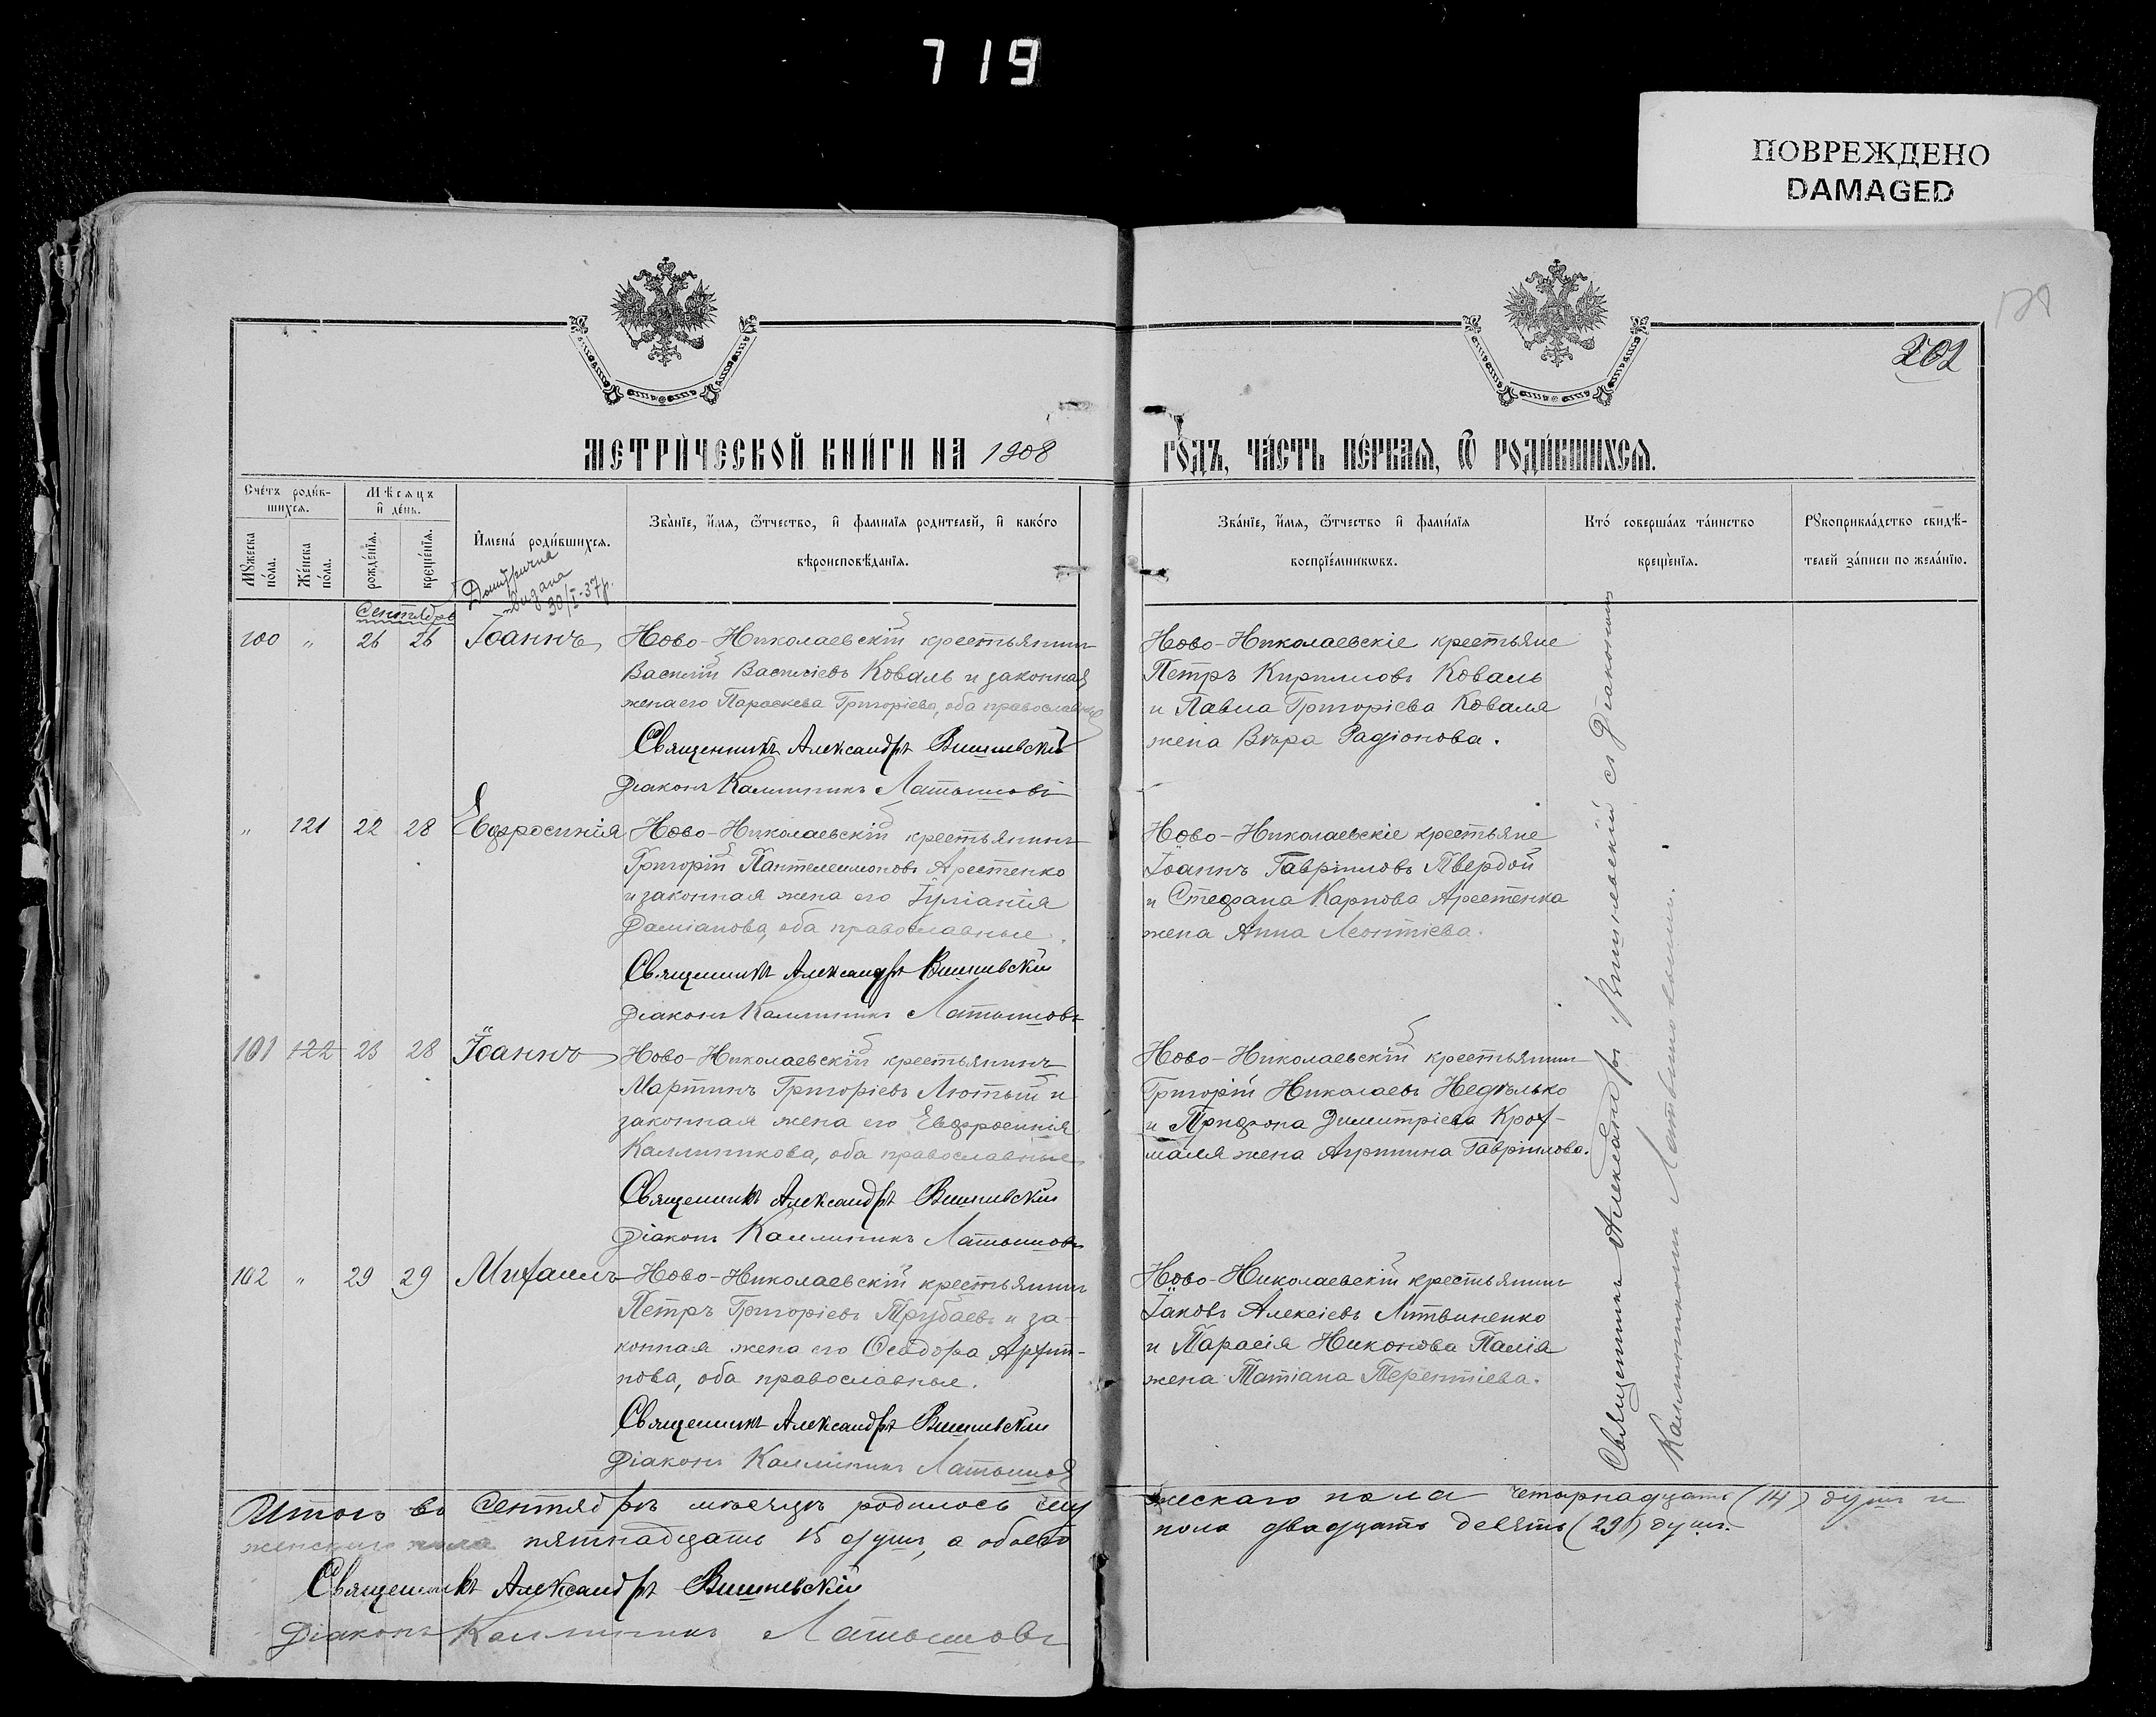 719
ПОВРЕЖДЕНО
DAMAGED
202
МЕТРИ́ЧЕСКОЙ КНИ́ГИ НА 1908 ГО́ДЪ, ЧА́СТЬ ПЕ́РВАѦ, Ѽ РОДИ́ВШИХСѦ.
Сче́тъ роди́в-
шихсѧ.
Мѣ́сѧцъ
и҆ де́нь.
Мꙋ́жеска
по́ла.
Же́нска
по́ла.
рожде́нїѧ.
креще́нїѧ.
И҆мена̀ роди́вшихсѧ.
Зва́нїе, и҆́мѧ, ѻ҆́тчество, и҆ фами́лїѧ роди́телей, и҆ како́гѡ
вѣроисповѣ́данїѧ.
Зва́нїе, и҆́мѧ, ѻ҆́тчество и҆ фами́лїѧ
воспрїе́мникѡвъ.
Кто̀ соверша́лъ та́инство
креще́нїѧ.
Рꙋкоприкла́дство свидѣ́-
телей за́писи по жела́нїю.
видана
30/I-37р.
Сентябрь
100 " 26 26 Іоаннъ
Ново-Николаевскій крестьянинъ
Василій Васильевъ Коваль и законная
жена его Параскева Григоріева, оба православные
Священникъ Александръ Вишневскій
Діаконъ Каллиникъ Латышовъ
Ново-Николаевскіе крестьяне
Петръ Кирилловъ Коваль
и Павла Григоріева Коваля
жена Вѣра Радіонова.
" 121 22 28 Евфросинія
Ново-Николаевскій крестьянинъ
Григорій Пантелеимоновъ Арестенко
и законная жена его Іуліанія
Даміанова, оба православные.
Священникъ Александръ Вишневскій
Діаконъ Каллиникъ Латышовъ
Ново-Николаевскіе крестьяне
Іоаннъ Гавріиловъ Твердой
и Стефана Карпова Арестенка
жена Анна Леонтіева.
101 122 23 28 Іоаннъ
Ново-Николаевскій крестьянинъ
Мартинъ Григоріевъ Лютый и
законная жена его Евфросинія
Каллиникова, оба православные
Священникъ Александръ Вишневскій
Діаконъ Каллиникъ Латышовъ
Ново-Николаевскій крестьянинъ
Григорій Николаевъ Недѣлько
и Трифона Димитріева Крох-
маля жена Агриппина Гавріилова.
102 " 29 29 Михаилъ
Ново-Николаевскій крестьянинъ
Петръ Григоріевъ Трубаевъ и за-
конная жена его Ѳеодора Архип-
пова, оба православные.
Священникъ Александръ Вишневскій
Діаконъ Каллиникъ Латышовъ
Ново-Николаевскій крестьянинъ
Іаковъ Алексіевъ Литвиненко
и Тарасія Никонова Палія
жена Татіана Терентіева.
Священникъ Александръ Вишневскій съ Діакономъ
Каллиникомъ Латышовымъ.
Итого въ Сентябрѣ мѣсяцѣ родилось мужескаго пола четырнадцать (14) душъ и
женскаго пола пятнадцать 15 душъ, а обоего пола двадцать девять (29) душъ.
Священникъ Александръ Вишневскій
Діаконъ Каллиникъ Латышовъ